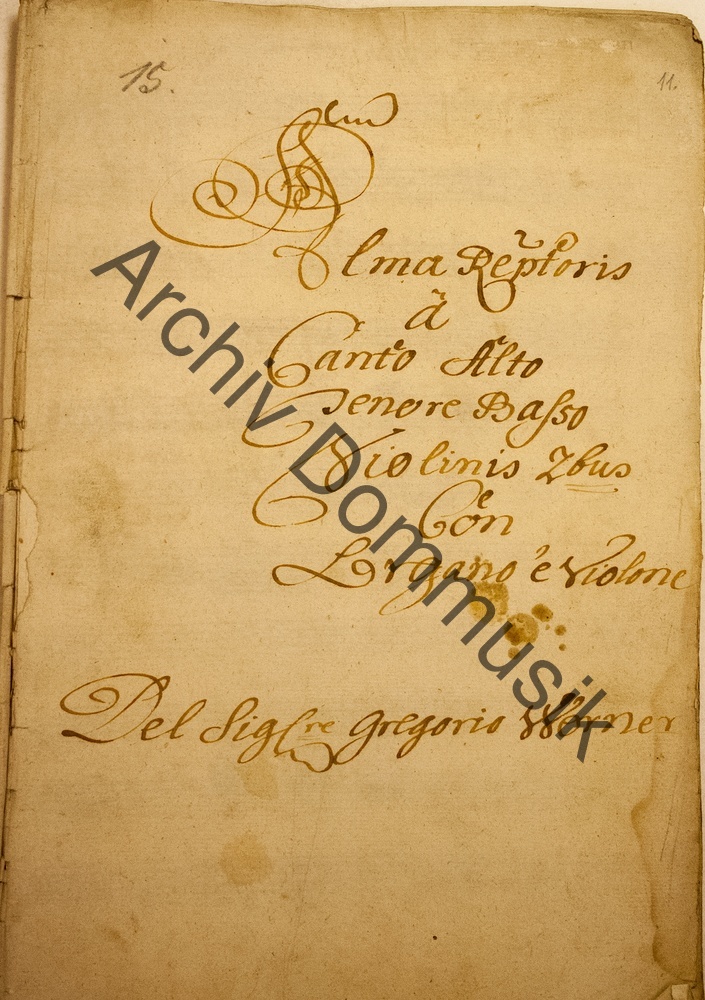 15.
11.
Alma Redẽptoris
â
Canto Alto
Tenore Basso
Violinis 2bus
Con
Organo è Violone
Del Sig:re Gregorio Werner
Archiv Dommusik